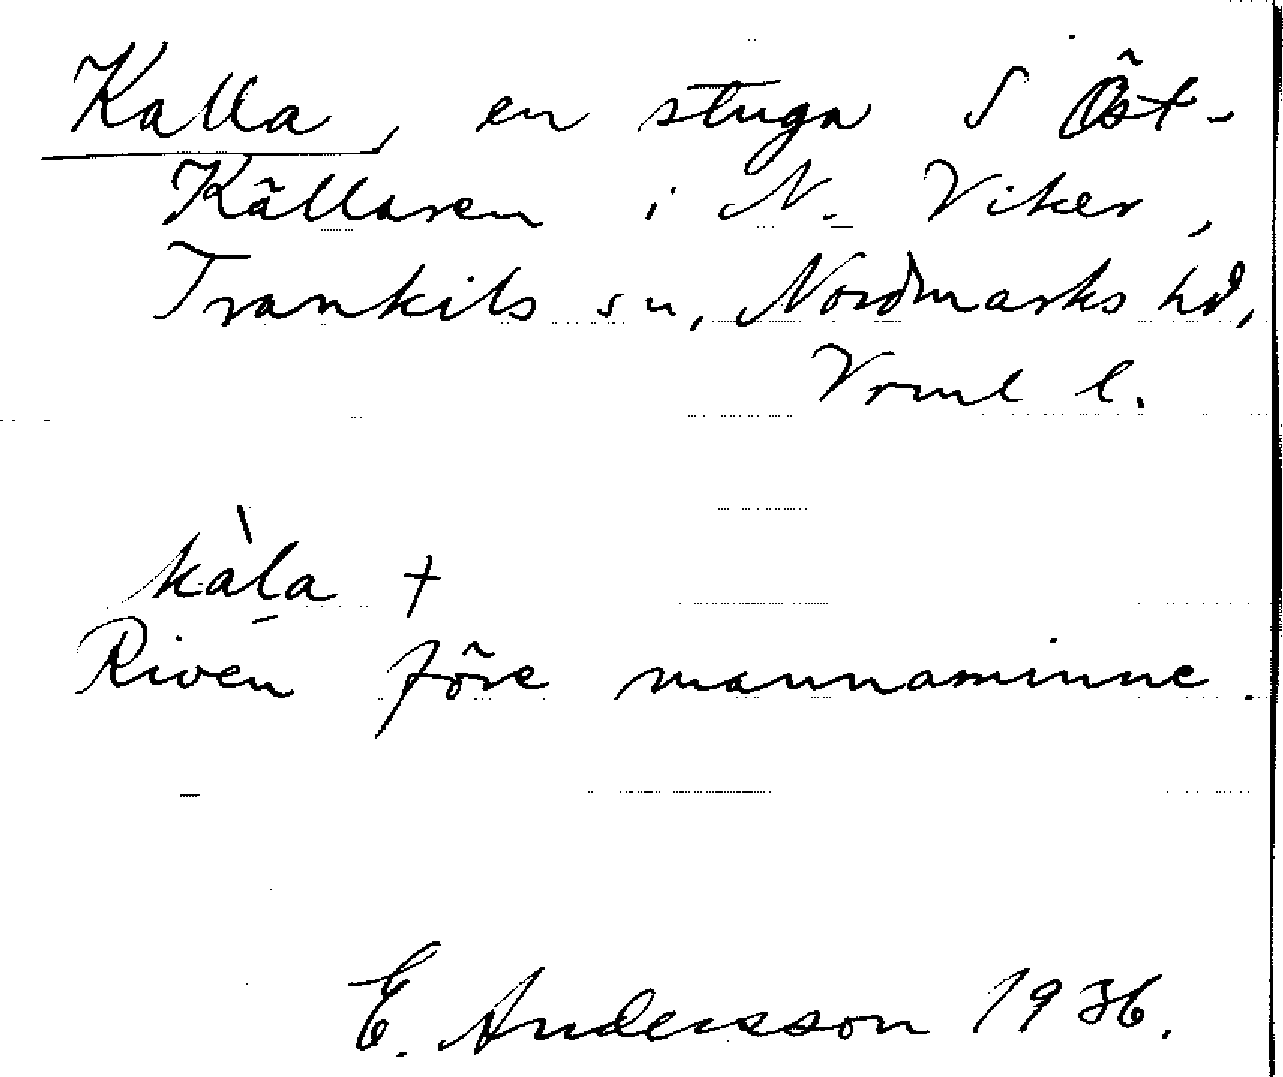 Kalla, en stuga S Öst-
Källaren i N. Viker,
Trankils sn, Nordmarks hd,
Vrml l.
kàla †
Riven före mannaminne.
E. Andersson 1936.